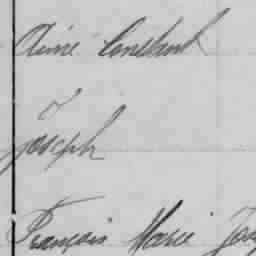 Aimé Constant
Joseph
François Marie